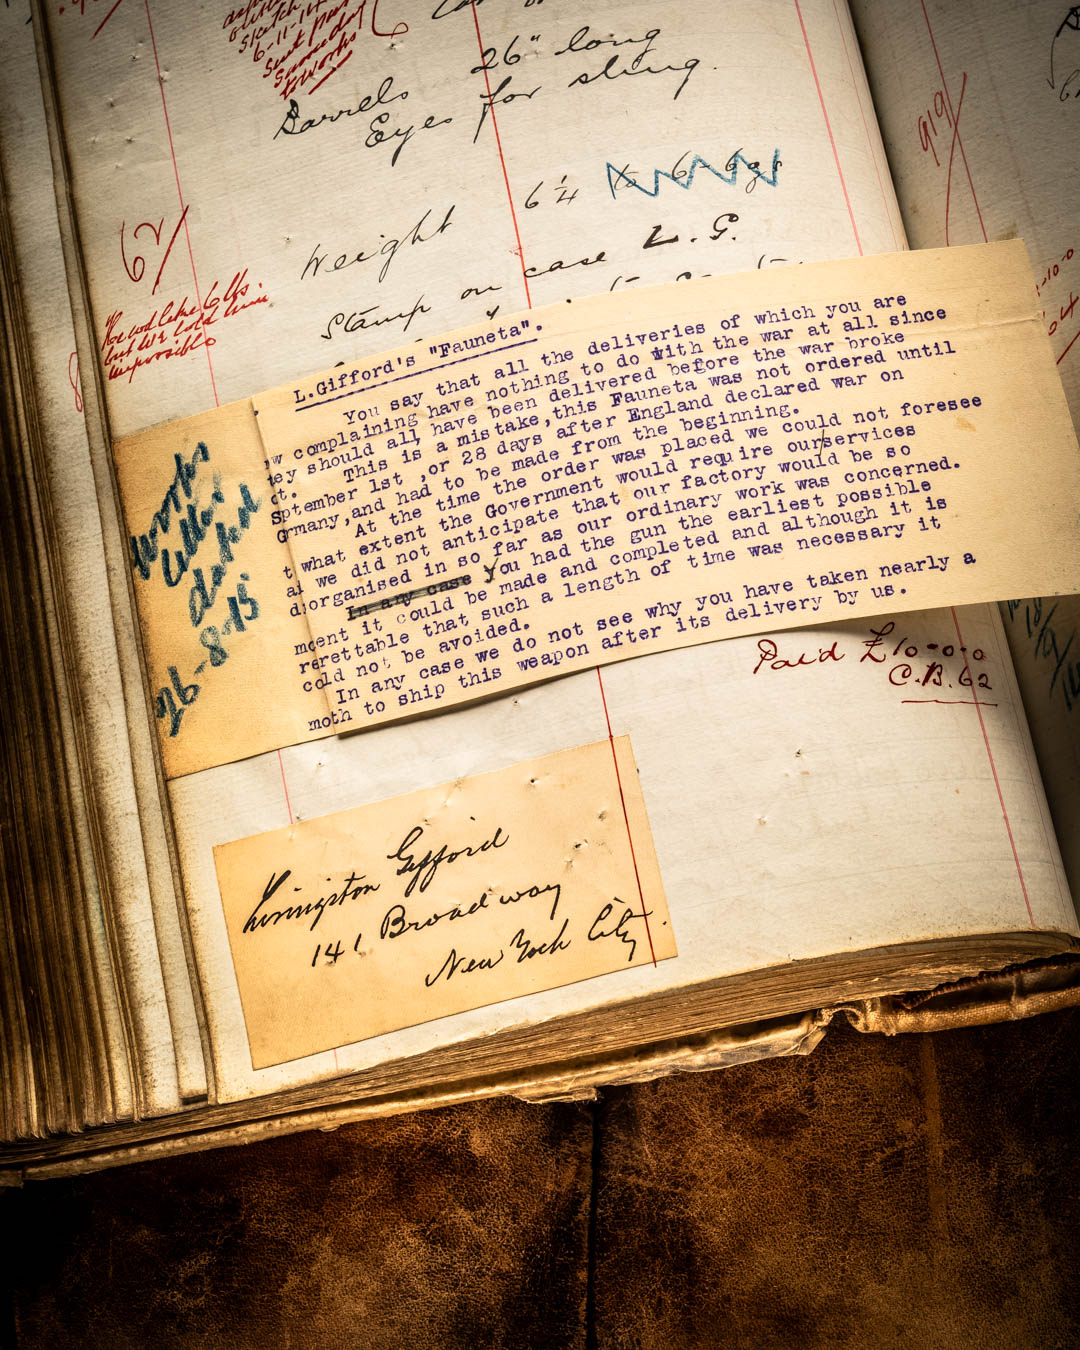 Sketch
6-11-14
Sent pass
to Works
Barrels 26" long
Eyes for sling.
919/
62/
Weight 6¼ to 6-6
He wod like 6 lbs.
but we told him
impossible
Stamp on case L.G.
L.Gifford's "Fauneta".
You say that all the deliveries of which you are
w complaining have nothing to do with the war at all since
tey should all have been delivered before the war broke
ot. This is a mistake,this Fauneta was not ordered until
Sptember 1st ,or 28 days after England declared war on
Grmany,and had to be made from the beginning.
At the time the order was placed we could not foresee
t what extent the Government would require our/services
al we did not anticipate that our factory would be so
diorganised in so far as our ordinary work was concerned.
In any case you had the gun the earliest possible
mcent it could be made and completed and although it is
rerettable that such a length of time was necessary it
cold not be avoided.
In any case we do not see why you have taken nearly a
moth to ship this weapon after its delivery by us.
Works
Letter
dated
26-8-15
Paid £10-0-0
C.B.62
Livingston Gifford
141 Broadway
New York City.